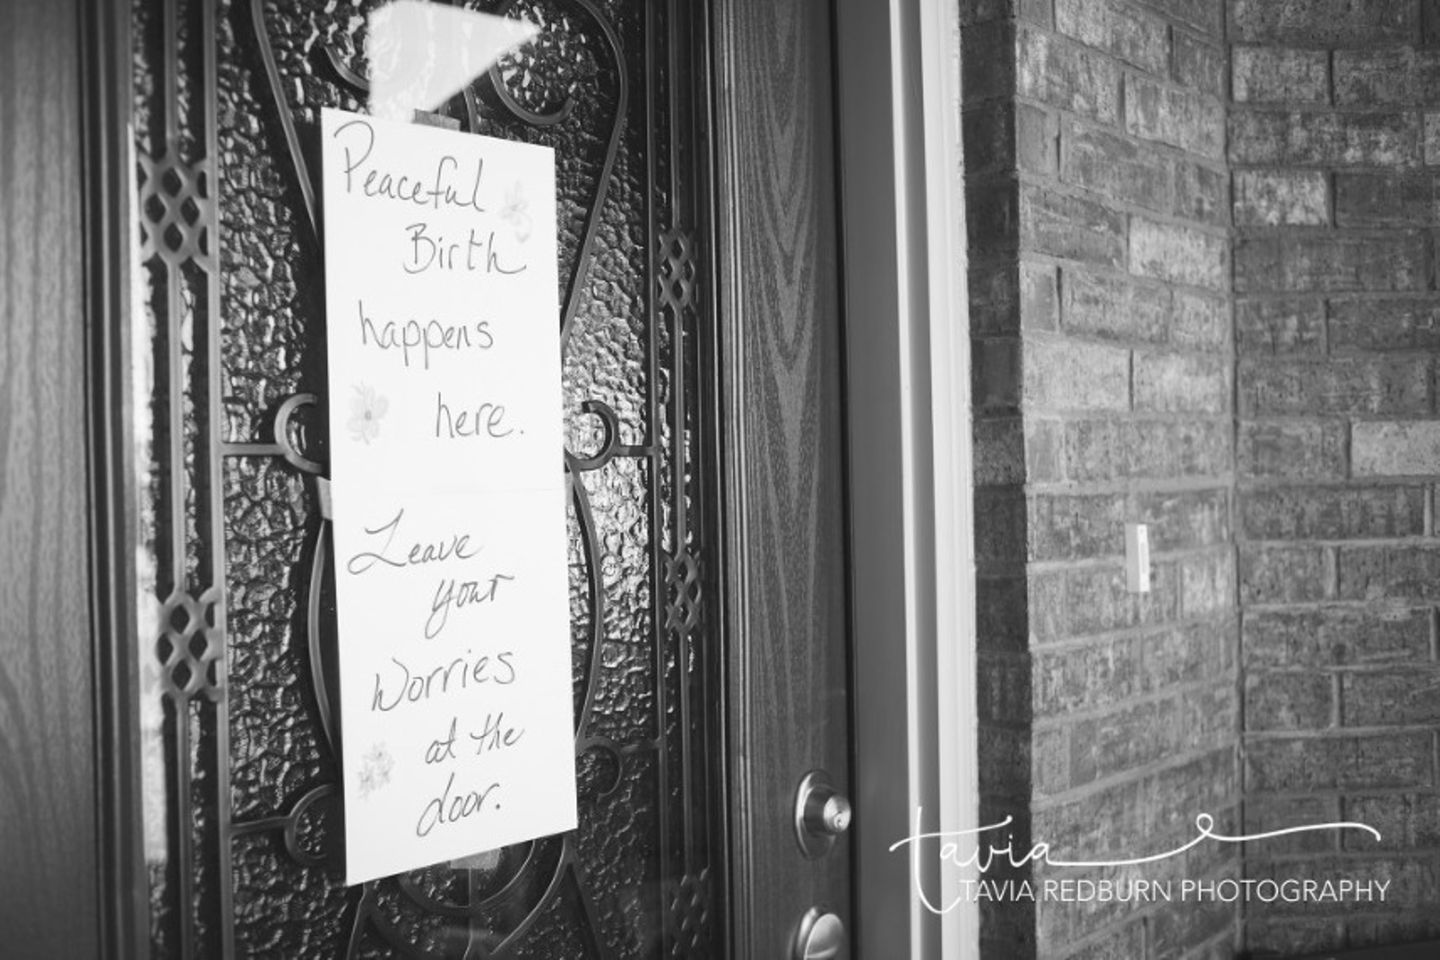 Peaceful
Birth
happens
here.
Leave
your
Worries
at the
door.
tavia
TAVIA REDBURN PHOTOGRAPHY